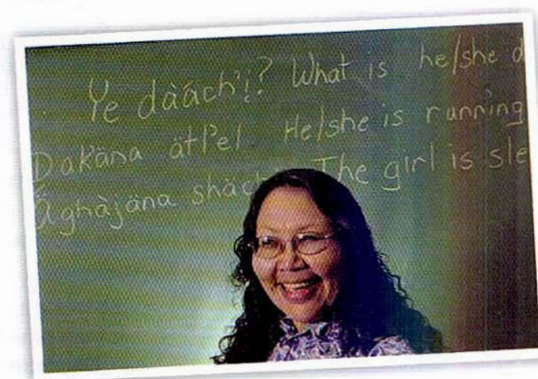 Ye dàách'į? What is he/she d
Dakäna ätl'el He/she is running
Äghàjäna shäch The girl is sle